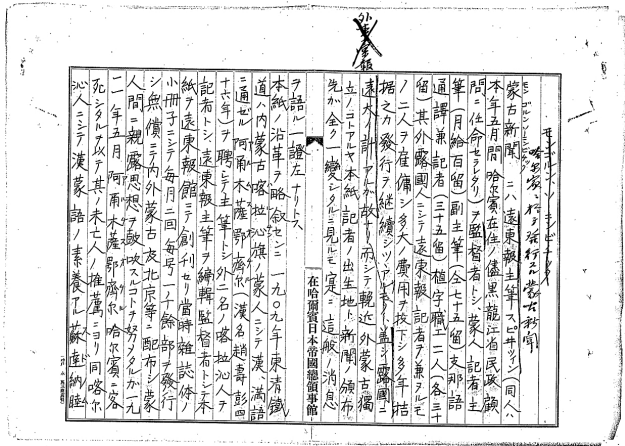 モンゴロン、ソニン、ビチク
哈爾賓ニ於テ發行スル蒙古新聞
蒙古新聞ニハ遠東報主筆スピツィン(同人ハ
本年五月間哈爾賓在住ノ儘黒龍江省民政顧
問ニ任命セラレタリ)ヲ監督者トシ蒙人記者ニ主
筆(月給百留)副主筆(仝七十五留)支那語
通譯兼記者(三十五留)植字職工二人(各三十
留)其外露國人ニシテ遠東報記者ヲ兼ヌルモ
ノ二人ヲ雇傭シ多大ノ費用ヲ投ジ多年拮
据之カ發行ヲ継續シツヽアルモノハ蓋シ露國ニ
遠大ノ計アルカ故ナリ而シテ輓近外蒙古獨
立ノコトアルヤ本紙記者ノ出生地ト新聞ノ頒布
先カ全ク一變シタルニ見ルモ寔ニ這般ノ消息
在哈爾賓日本帝國總領事館
ヲ語ル一證左ナリトス
本紙ノ沿革ヲ略敘センニ一九〇九年東清鐵
道ハ内蒙古喀拉沁旗ノ蒙人ニシテ漢、満語
ニ通ゼル阿爾木薩鄂齊爾(漢名趙壽彭四
十六年)ヲ聘シテ主筆トシ外二名ノ喀拉沁人ヲ
記者トシ遠東報主筆ヲ編輯監督者トシテ本
紙ヲ遠東報館ニテ創刊セリ當時雜誌体ノ
小册子ニシテ毎月二回毎号一千餘部ヲ發行
シ無償ニテ内外蒙古及北京等ニ配布シ蒙
人間ニ親露思想ヲ鼓吹スルコトヲ努メタルカ一九
一一年五月阿爾木薩鄂齊爾哈爾賓ニ客
死シタルヲ以テ其ノ未亡人ノ推薦ニヨリ同喀喇
沁人ニシテ漢蒙語ノ素養アル蘇達納睦